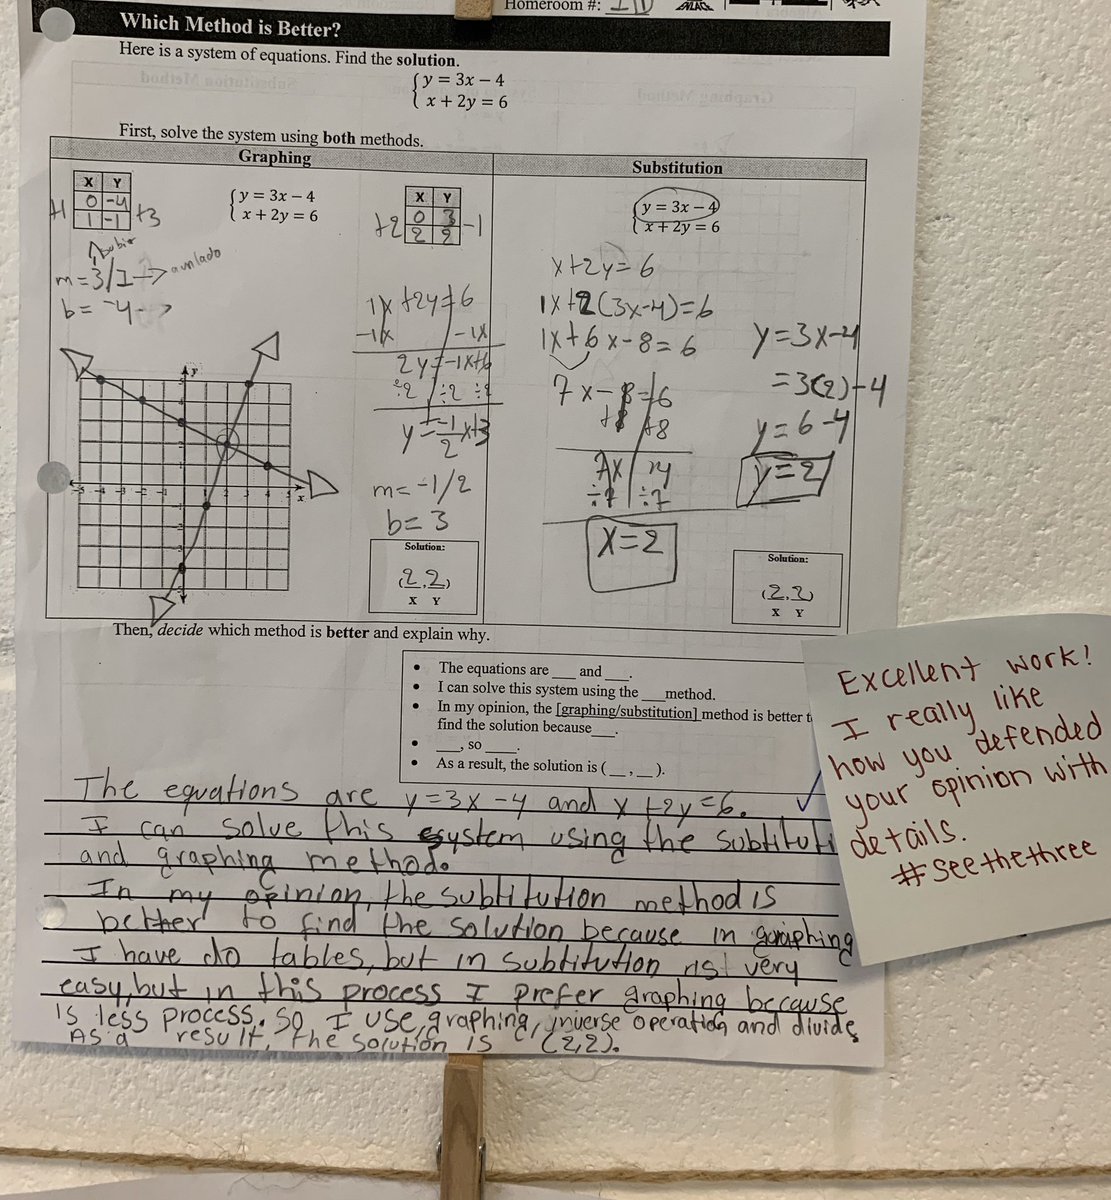 Homeroom #:
Which Method is Better?
Here is a system of equations. Find the solution.
y = 3x − 4
x + 2y = 6
First, solve the system using both methods.
Graphing
X Y
0 -4
1 -1
+1
+3
subir
m=3/1→ a un lado
b= -4→
y = 3x − 4
x + 2y = 6
X Y
0 3
2 2
+2
-1
1x+2y=6
-1x -1x
2y=-1x+6
÷2 ÷2 ÷2
y=-1/2x+3
m=-1/2
b=3
y
x
Solution:
(2,2)
X Y
Substitution
y = 3x − 4
x + 2y = 6
x+2y=6
1x+2(3x-4)=6
1x+6x-8=6
7x-8=6
+8 +8
7x 14
÷7 ÷7
x=2
y=3x-4
=3(2)-4
y=6-4
y=2
Solution:
(2,2)
X Y
Then, decide which method is better and explain why.
• The equations are ___ and ___.
• I can solve this system using the ___method.
• In my opinion, the [graphing/substitution] method is better t
find the solution because___.
• ___, so ___.
• As a result, the solution is (__,__).
The equations are y=3x-4 and x+2y=6.
I can solve this system using the subtituti
and graphing method.
In my opinion, the subtitution method is
better to find the solution because in graphing
I have do tables, but in subtitution is very
easy, but in this process I prefer graphing because
is less process. So I use graphing, inverse operation and divide
As a result, the solution is (2,2).
Excellent work!
I really like
how you defended
your opinion with
details.
#seethethree